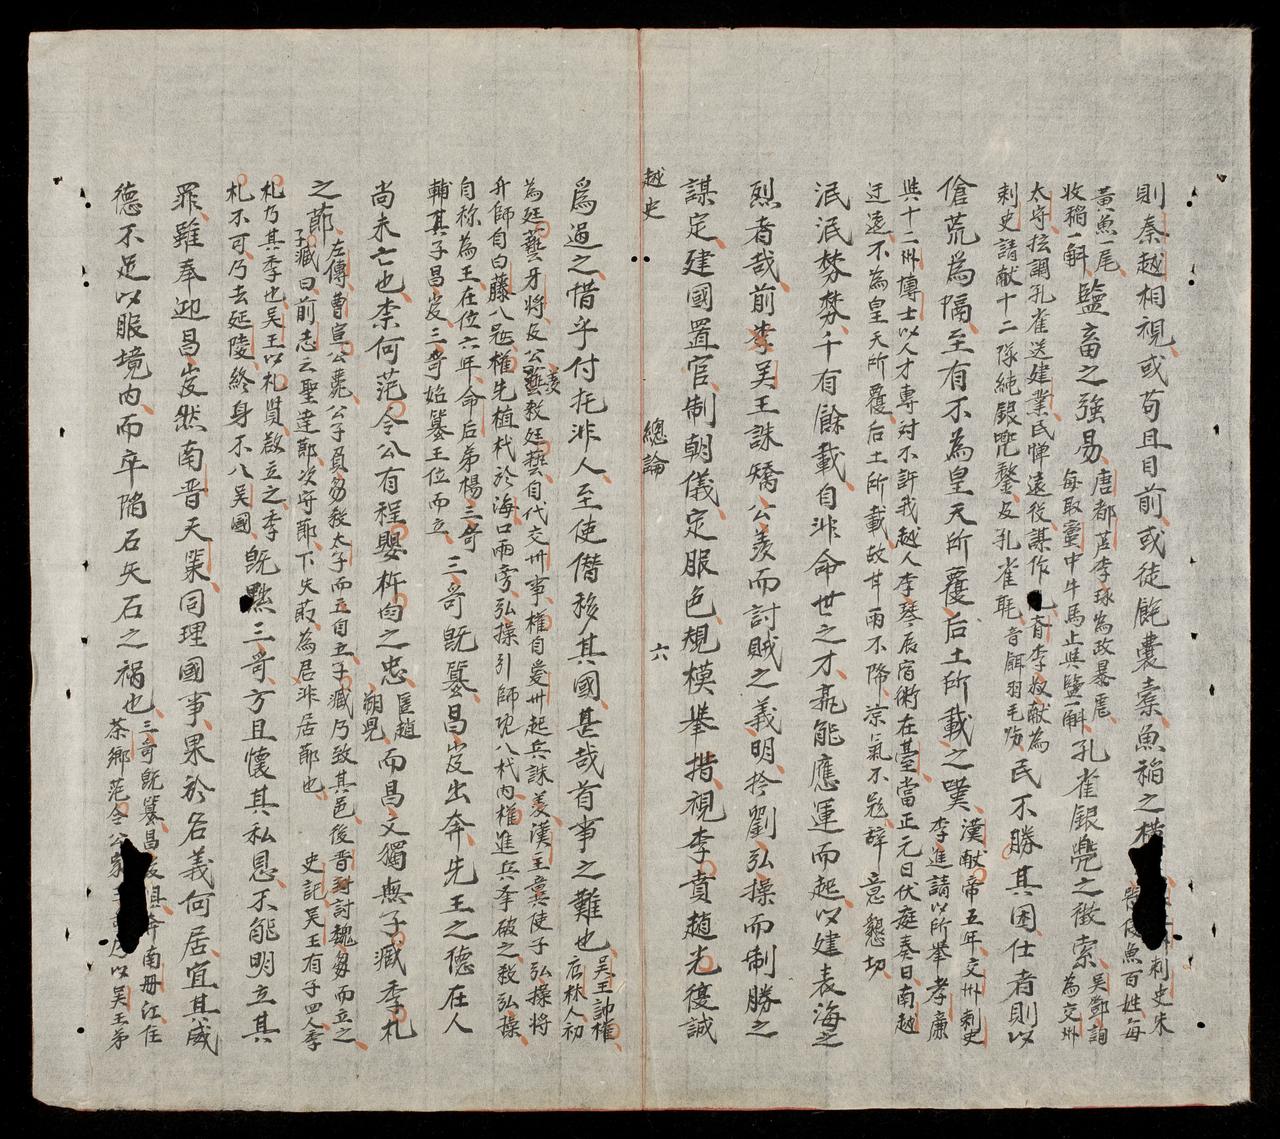 則秦越相視或苟且目前或徒飽囊橐魚稻之
刺史朱
魚百姓每
黃魚一尾
收稻一斛
鹽畜之強易
唐都䕶李琢為政暴虐
每取蠻中牛馬止與鹽一斛
孔雀銀甖之徵索
吳鄧詢
為交州
太守抗調孔雀送建業民憚遠役謀作
李叔献為
刺史請献十二隊純銀兜鍪及孔雀毦音餌羽毛飾
民不勝其困仕者則以
傖荒為隔至有不為皇天所覆后土所載之嘆
漢献帝五年交州刺史
李進請以所舉孝廉
與十二州博士以人才專対不許我越人李琴辰宿術在臺當正元日伏庭奏曰南越
迂遠不為皇天所覆后土所載故甘雨不降凉氣不
辞意懇切
泯泯棼棼千有餘載自非命世之才烝能應運而起以建表海之
烈者哉前李吴王誅矯公羨而討賊之義明擒劉弘操而制勝之
謀定建國置官制朝儀定服色規模舉措視李賁趙光復誠
越史 總論 六
爲過之惜乎付托非人至使僭移其國甚哉首事之難也
吴王帥權
唐林人初
為廷藝牙将及公羨教廷藝自代交州事權自愛州起兵誅羡漢主龑使子弘操将
舟師自白藤入冦權先植杙於海口兩旁弘操引師
入杙内權進兵奉破之殺弘操
自称為王在位六年命后弟楊三哥
輔其子昌岌三哥始簒王位而立
三哥既簒昌岌出奔先王之德在人
尚未亡也柰何范令公有程嬰杵臼之忠
匡趙
朔児
而昌文獨無子臧季札
之莭
左傳曹宣公薨公子負芻殺太子而自立子臧乃致其邑後晋討魏芻而立之
子臧曰前志云聖達莭次守莭下失莭為君非居莭也
史記吴王有子四人季
札乃其季也吴王以札賢欲立之季
札不可乃去延陵終身不入吴國
既黙三哥方且懐其私恩不能明立其
罪雖奉迎昌岌然南晋天䇿同理國事果於名義何居宜其威
德不足以服境内而卒陥石矢石之禍也
三哥既簒昌岌
奔南冊江任
茶鄉范令公家
以吴王第